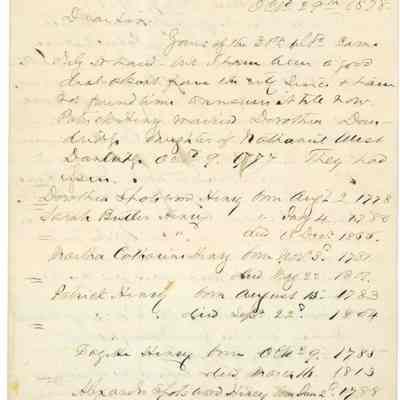 Sept 29th 1878
Dear Sir
Yours of the 31st ult. came
duly to hand - but I have been a good
deal absent from the city since & have
not found time to answer it till now.
Patrick Henry married Dorothea Dan-
dridge daughter of Nathaniel West
Dandridge Octr. 9. 1777 They had
Dorothea Spotswood Henry born Augt 2 1778
Sarah Butler Henry " Jany 4. 1780
died Decr. 1855.
Martha Catharine Henry born Novr. 3d. 1781
died 1801.
Patrick Henry born August 15. 1783
died Sept. 22d. 1804
Henry born Octr. 9. 1785
died 1813
Alexander Spotswood Henry born June 2d. 1788